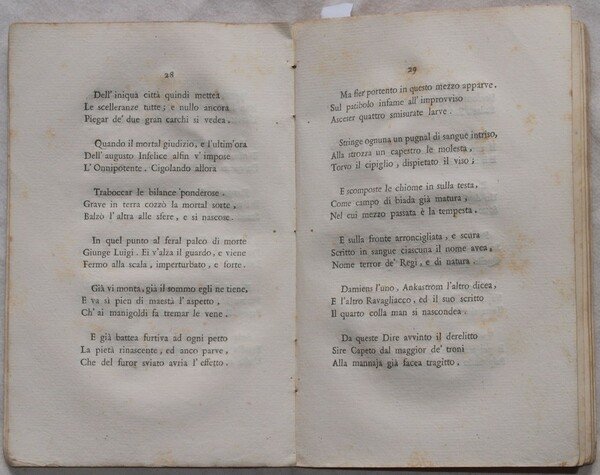 28
Dell' iniqua città quindi mettea
Le scelleranze tutte; e nullo ancora
Piegar de' due gran carchi si vedea.
Quando il mortal giudizio, e l'ultim'ora
Dell' augusto Infelice alfin v' impose
L' Onnipotente. Cigolando allora
Traboccar le bilance ponderose.
Grave in terra cozzò la mortal sorte,
Balzò l' altra alle sfere, e si nascose.
In quel punto al feral palco di morte
Giunge Luigi. Ei v'alza il guardo, e viene
Fermo alla scala, imperturbato, e forte.
Già vi monta, già il sommo egli ne tiene,
E va sì pien di maestà l' aspetto,
Ch' ai manigoldi fa tremar le vene.
E già battea furtiva ad ogni petto
La pietà rinascente, ed anco parve,
Che del furor sviato avria l' effetto.
29
Ma fier portento in questo mezzo apparve,
Sul patibolo infame all' improvviso
Asceser quattro smisurate larve.
Stringe ognuna un pugnal di sangue intriso,
Alla strozza un capestro le molesta,
Torvo il cipiglio, dispietato il viso;
E scomposte le chiome in sulla testa,
Come campo di biada già matura,
Nel cui mezzo passata è la tempesta.
E sulla fronte arroncigliata, e scura
Scritto in sangue ciascuna il nome avea,
Nome terror de' Regi, e di natura.
Damiens l'uno, Ankastrom l'altro dicea,
E l'altro Ravagliacco, ed il suo scritto
Il quarto colla man si nascondea.
Da queste Dire avvinto il derelitto
Sire Capeto dal maggior de' troni
Alla mannaja già facea tragitto.